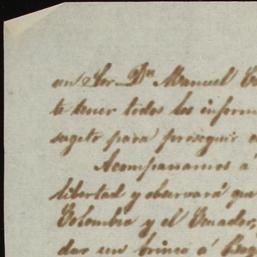 un Sor Dn Manuel
te tener todos los inform
sugeto para proseguir
Acompañamos á
libertad y observará que
Colombia y el Ecuador,
dar un brinco á Bog